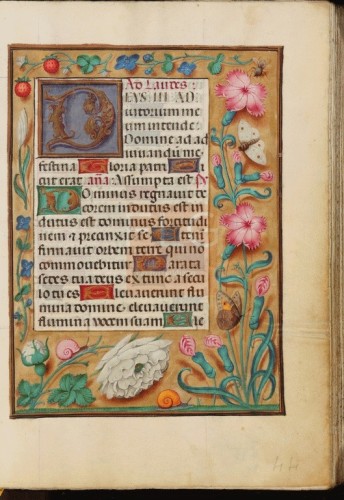 Ad Laudes:
EVS IN AD
iutorium me
um intende:
Domine ad ad
iuuandū me
festina Gloria patri
sicut erat ana: Assumpta est ps
Dominus regnauit de
corem indutus est in
dutus est dominus fortitudi
nem et precinxit se Eteni
firmauit orbem terre qui nō
commouebitur Parata
sedes tua deus ex tunc a secu
lo tu es Eleuauerunt flu
mina domine eleuauerunt
flumina vocem suam Ele